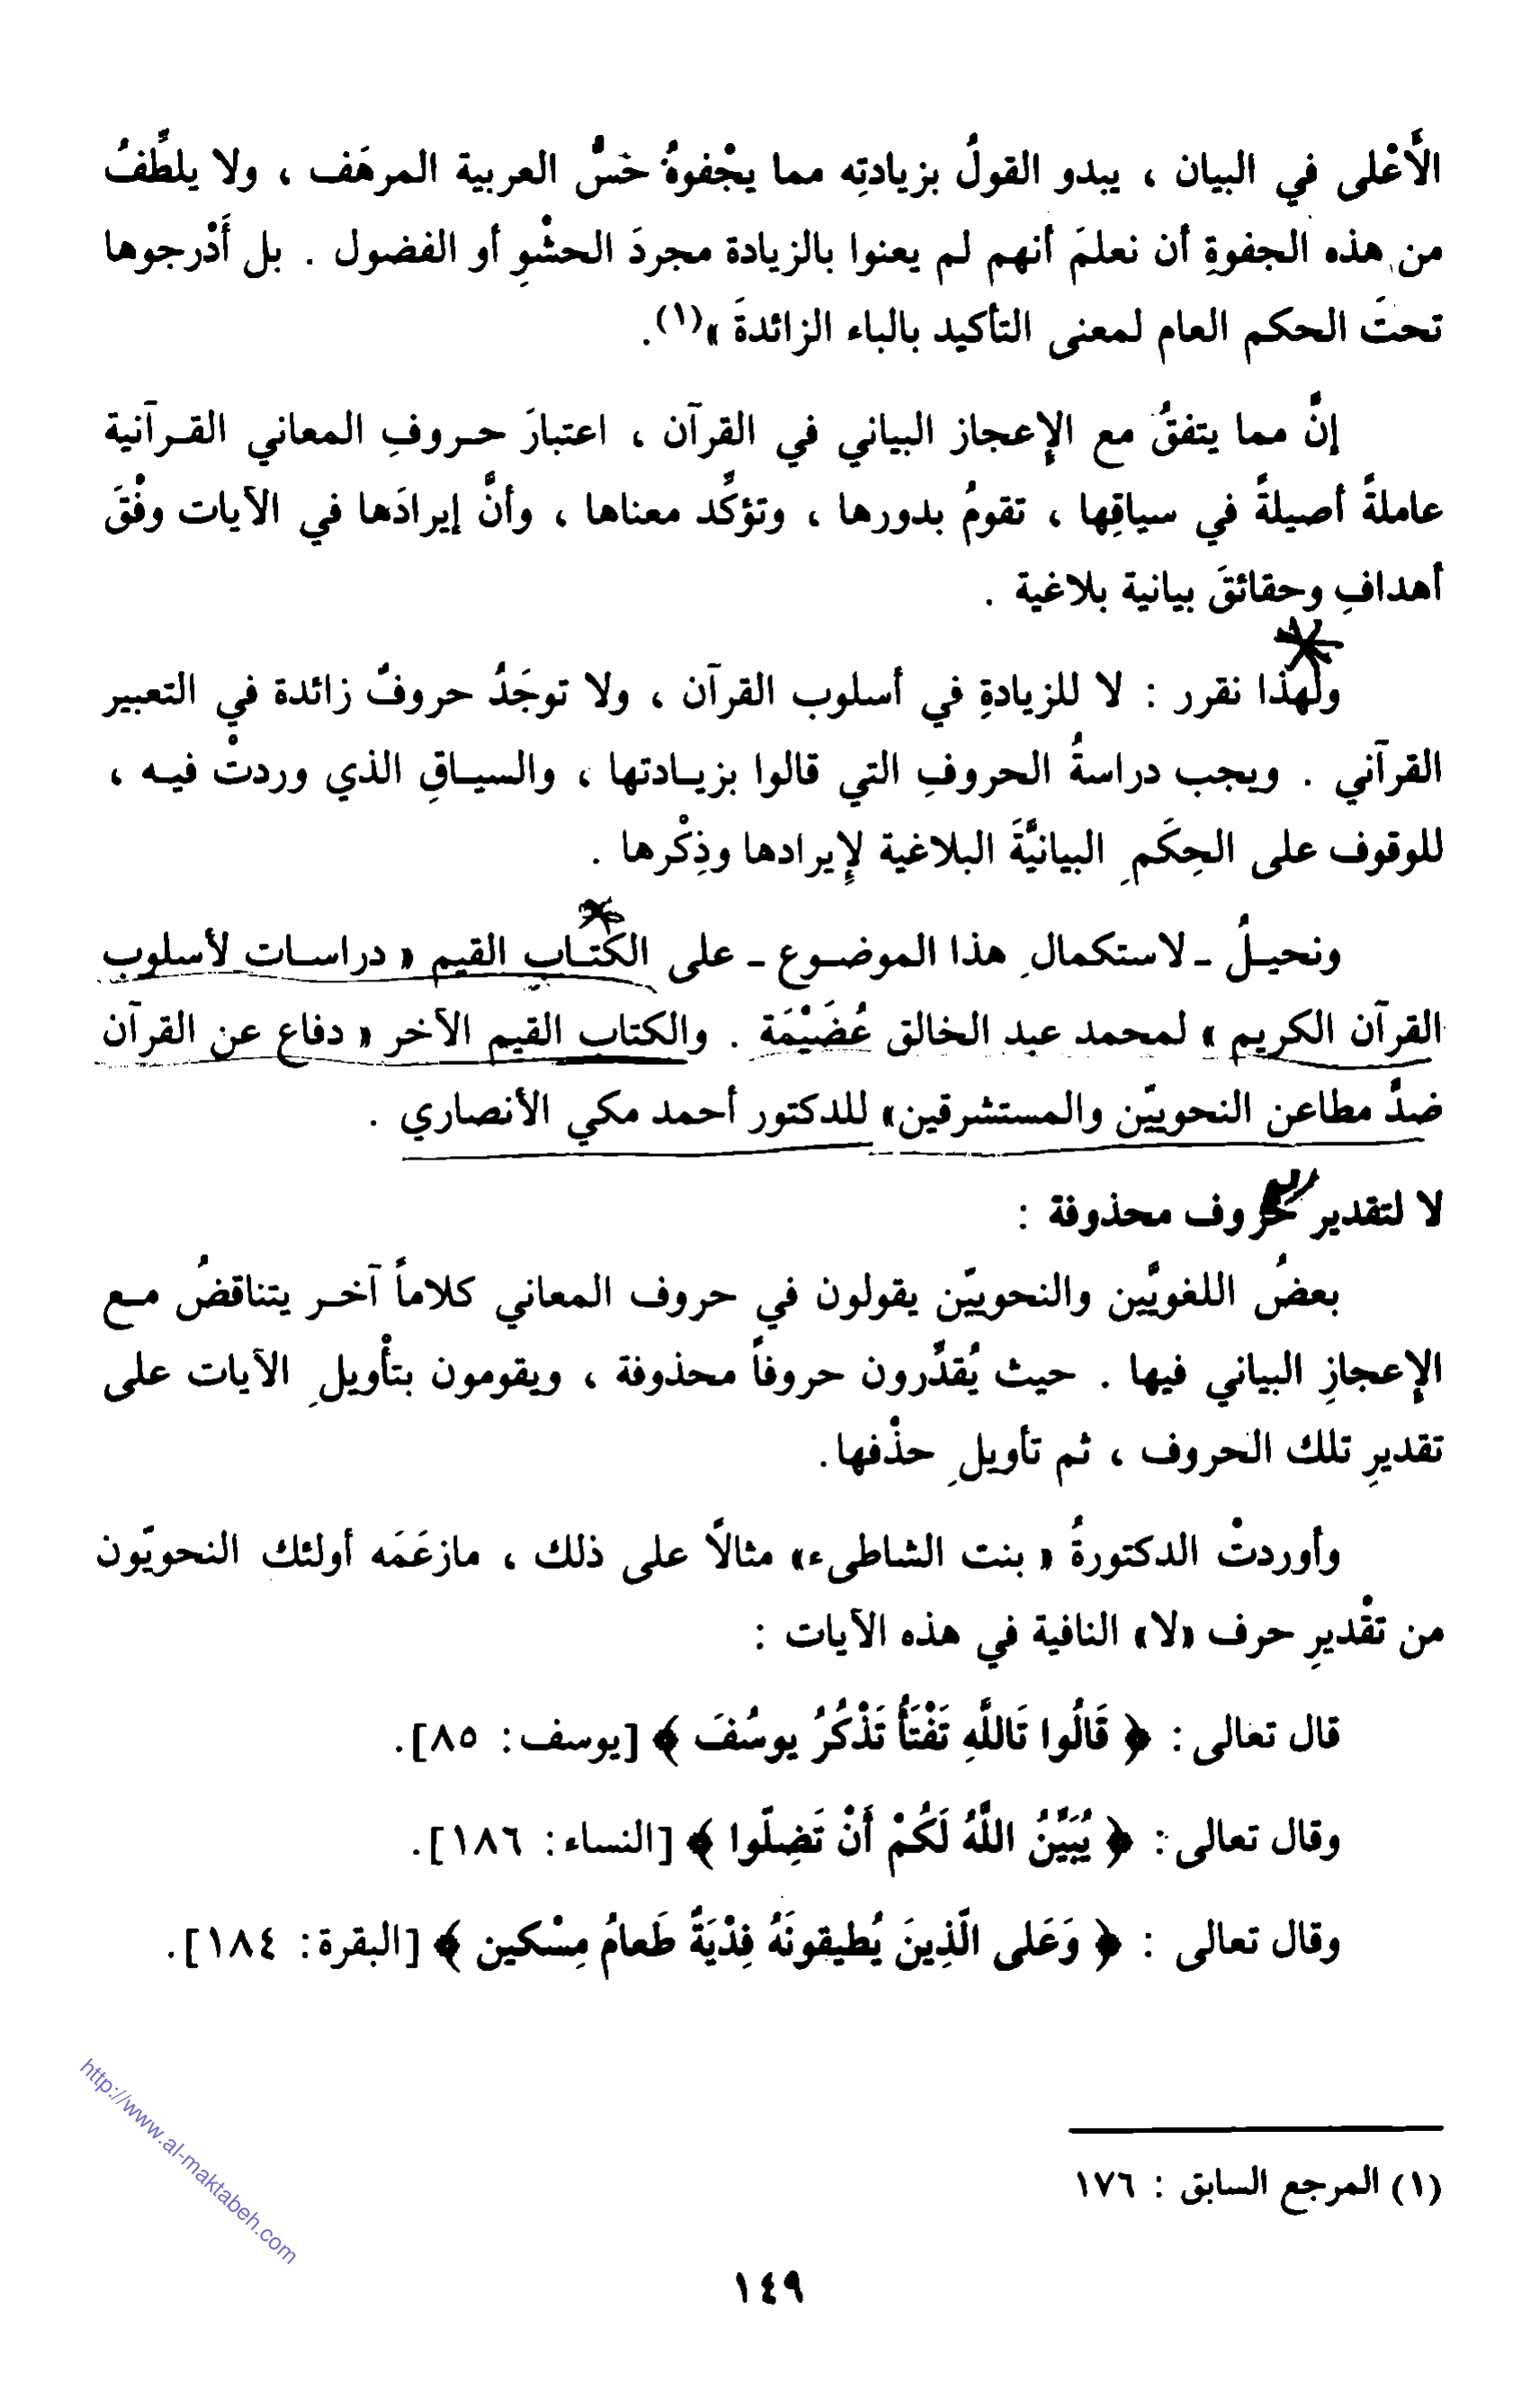 الأَعْلى في البيان ، يبدو القولُ بزيادتِه مما يجْفوهُ حَسُّ العربية المرهَف ، ولا يلطِّفُ
من هذه الجفوةِ أن نعلمَ أنهم لم يعنوا بالزيادة مجردَ الحشْوِ أو الفضول . بل أَدْرجوها
تحتَ الحكم العام لمعنى التأكيد بالباء الزائدةَ »(١).
إنَّ مما يتفقُ مع الإعجاز البياني في القرآن ، اعتبارَ حـروفِ المعاني القـرآنية
عاملةً أصيلةً في سياقِها ، تقومُ بدورها ، وتؤكِّد معناها ، وأنَّ إيرادَها في الآيات وفْقَ
أهدافِ وحقائقَ بيانية بلاغية .
ولهذا نقرر : لا للزيادةِ في أسلوب القرآن ، ولا توجَدُ حروفٌ زائدة في التعبير
القرآني . ويجب دراسةُ الحروفِ التي قالوا بزيـادتها ، والسيـاقِ الذي وردتْ فيـه ،
للوقوف على الحِكَمِ البيانيَّةَ البلاغية لإيرادها وذِكْرها .
ونحيـلُ ـ لاستكمالِ هذا الموضـوع ـ على الكتـابِ القيم « دراسـات لأسلوب
القرآن الكريم » لمحمد عبد الخالق عُضَيْمَة . والكتاب القيم الآخر « دفاع عن القرآن
ضدَّ مطاعن النحويّين والمستشرقين» للدكتور أحمد مكي الأنصاري .
لا لتقدير حروف محذوفة :
بعضُ اللغويِّين والنحويّين يقولون في حروف المعاني كلاماً آخـر يتناقضُ مـع
الإعجازِ البياني فيها . حيث يُقدِّرون حروفاً محذوفة ، ويقومون بتأْويلِ الآيات على
تقديرِ تلك الحروف ، ثم تأويلِ حذْفها.
وأوردتْ الدكتورةُ « بنت الشاطىء» مثالاً على ذلك ، مازعَمَه أولئك النحويّون
من تقْديرِ حرف «لا» النافية في هذه الآيات :
قال تعالى : ﴿ قَالُوا تَاللَّهِ تَفْتَأُ تَذْكُرُ يوسُفَ ﴾ [يوسف : ٨٥].
وقال تعالى : ﴿ يُبَيِّنُ اللَّهُ لَكُمْ أَنْ تَضِلّوا ﴾ [النساء : ١٨٦].
وقال تعالى : ﴿ وَعَلى الّذِينَ يُطيقونَهُ فِدْيَةٌ طَعامُ مِسْكين ﴾ [البقرة : ١٨٤].
(١) المرجع السابق : ١٧٦
http://www.al-maktabeh.com
١٤٩